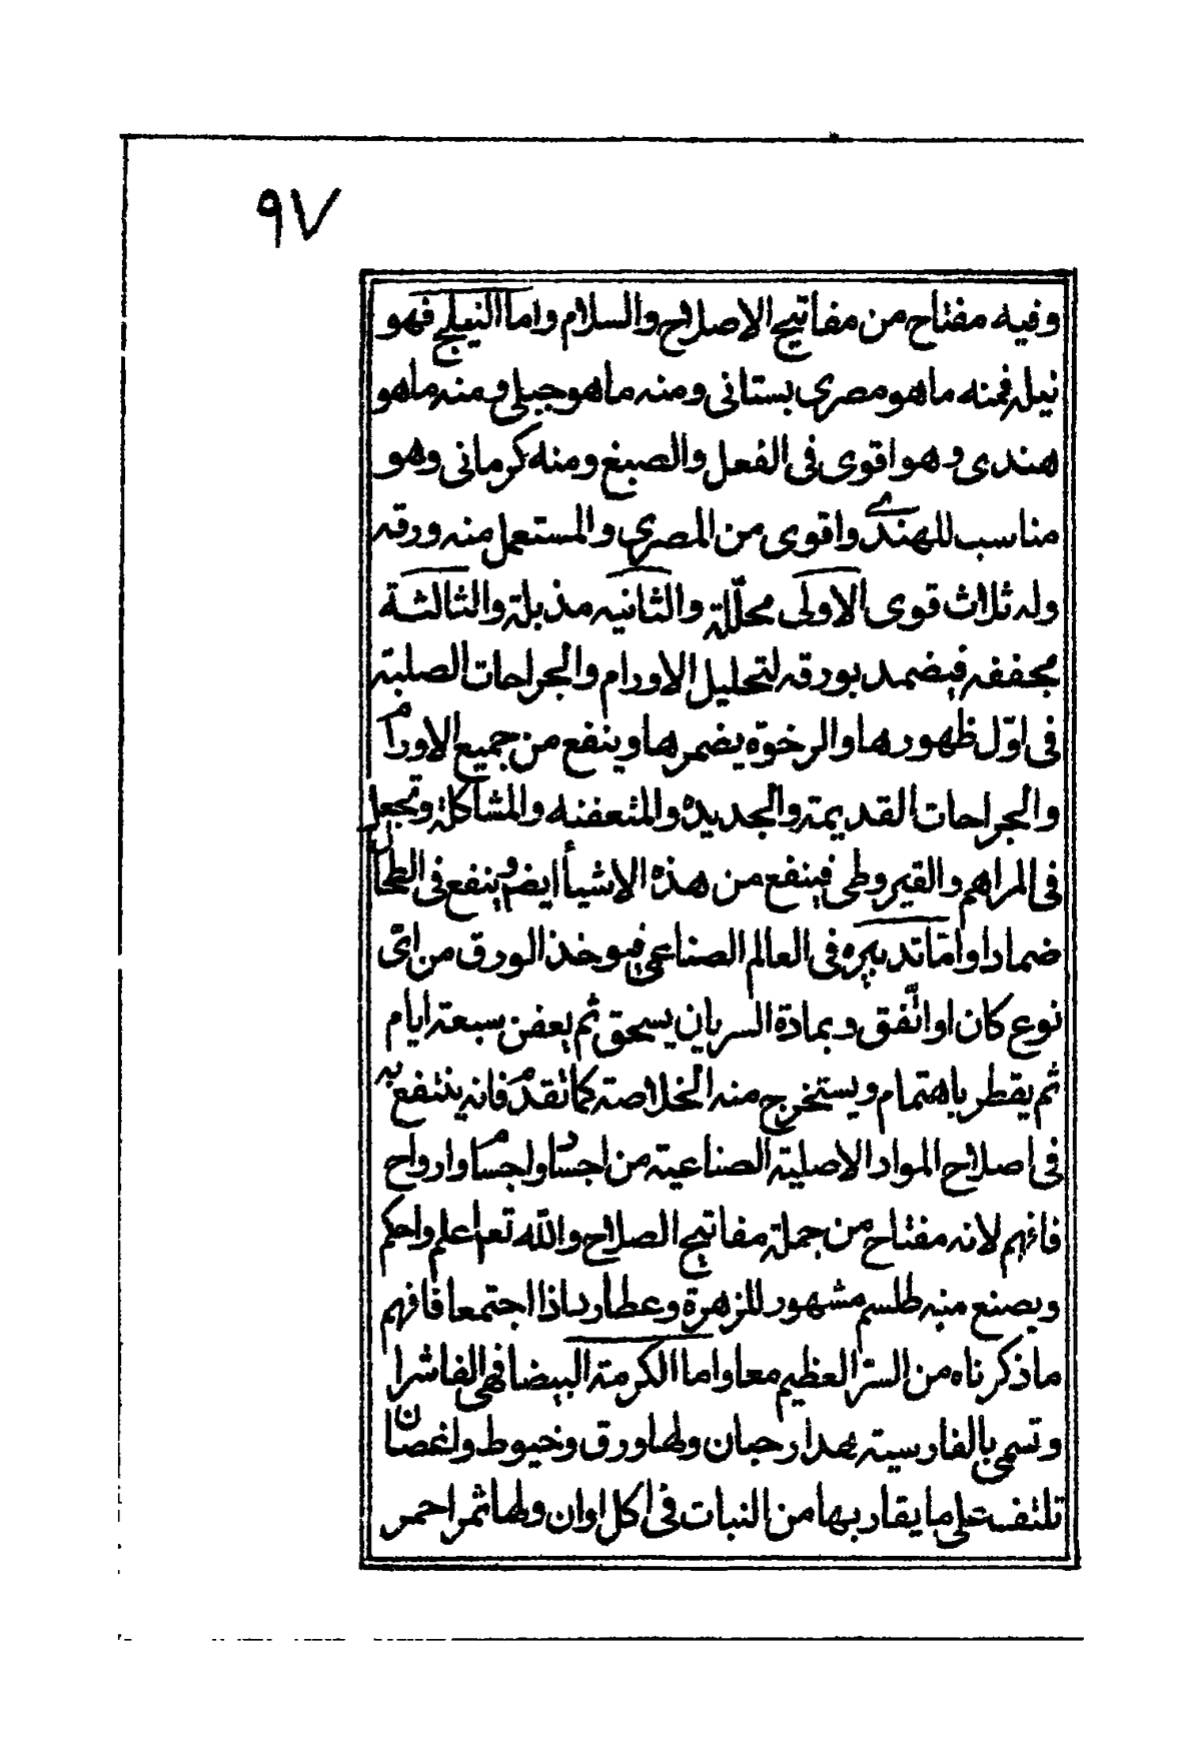 ٩٧
وفيه مفتاح من مفاتيح الاصلاح والسلام واما النيلج فهو
نيله فمنه ماهو مصرى بستانى ومنه ماهو جبلى ومنه ماهو
هندى وهو اقوى فى الفعل والصبغ ومنه كرمانى وهو
مناسب للهندى واقوى من المصرى والمستعمل منه ورقه
وله ثلاث قوى الاولى محلّلة والثانيه مذبلة والثالثة
مجففه فيضمد بورقه لتحليل الاورام والجراحات الصلبة
فى اوّل ظهورها والرخوّه يضمرها وينفع من جميع الاورام
والجراحات القديمة والجديده والمتعفنه والمشاكلة وتجعل
فى المراهم والقيروطى فينفع من هذه الاشيأ ايضا وينفع فى الطحال
ضمادا وامّا تدبيره فى العالم الصناعى فيوخذ الورق من اىّ
نوع كان او اتّفق وبمادة السريان يسحق ثم يعفن سبعة ايام
ثم يقطر باهتمام ويستخرج منه الخلاصة كما تقدم فانه ينتفع به
فى اصلاح المواد الاصلية الصناعية من اجساد واجسام وارواح
فافهم لانه مفتاح من جملة مفاتيح الصلاح والله تعا اعلم واحكم
ويصنع منه طلسم مشهور للزهرة وعطارد اذا اجتمعا فافهم
ما ذكرناه من السرّ العظيم معا واما الكرمة البيضا فهى الفاشرا
وتسمى بالفارسية هزار حبان ولها ورق وخيوط واغصان
تلتفت على ما يقاربها من النبات فى اكل اوان ولها ثمر احمر